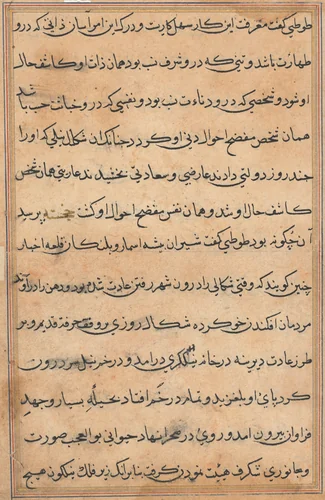 طوطی گفت معرفت این کار سهل کاریست و درک این امر آسان ذاتی که درو
طهارت باشد و تنی که درو شرف نسب بود همان ذات او کاشف حال
او شود و شخصی که درو دناءت نسب بود و نفسی که درو خباثت حسب باشد
همان شخص مفضح احوال دنی او گردد چنانکه آن شکل شکلی که او را
چند روز دولتی دادند عارضی و سعادتی بخشیدند عاریتی همان شخص
کاشف حال او شد و همان نفس مفضح احوال او گشت خجسته پرسید
آن چگونه بود طوطی گفت شیران بیشه اسمار و پلنگان قلعه اخبار
چنین گویند که وقتی شکالی را درون شهر رفتن عادت شده بود و دهن در آوند
مردمان افکندن خو کرده شکال روزی بر وفق حرفه قدیم و بر
طرز عادت دیرینه در خانه نیلگری درامد و در خم نیل سر درون
کرد پای او بلغزید و تمام در خم افتاد بحیله بسیار و جهد
فراوان بیرون آمد و روی در صحرا نهاد حیوانی بوالعجب صورت
و جانوری شگرف هیئت می نمود در گرفت بنا بر آنکه زیر فلک نیلگون هیچ